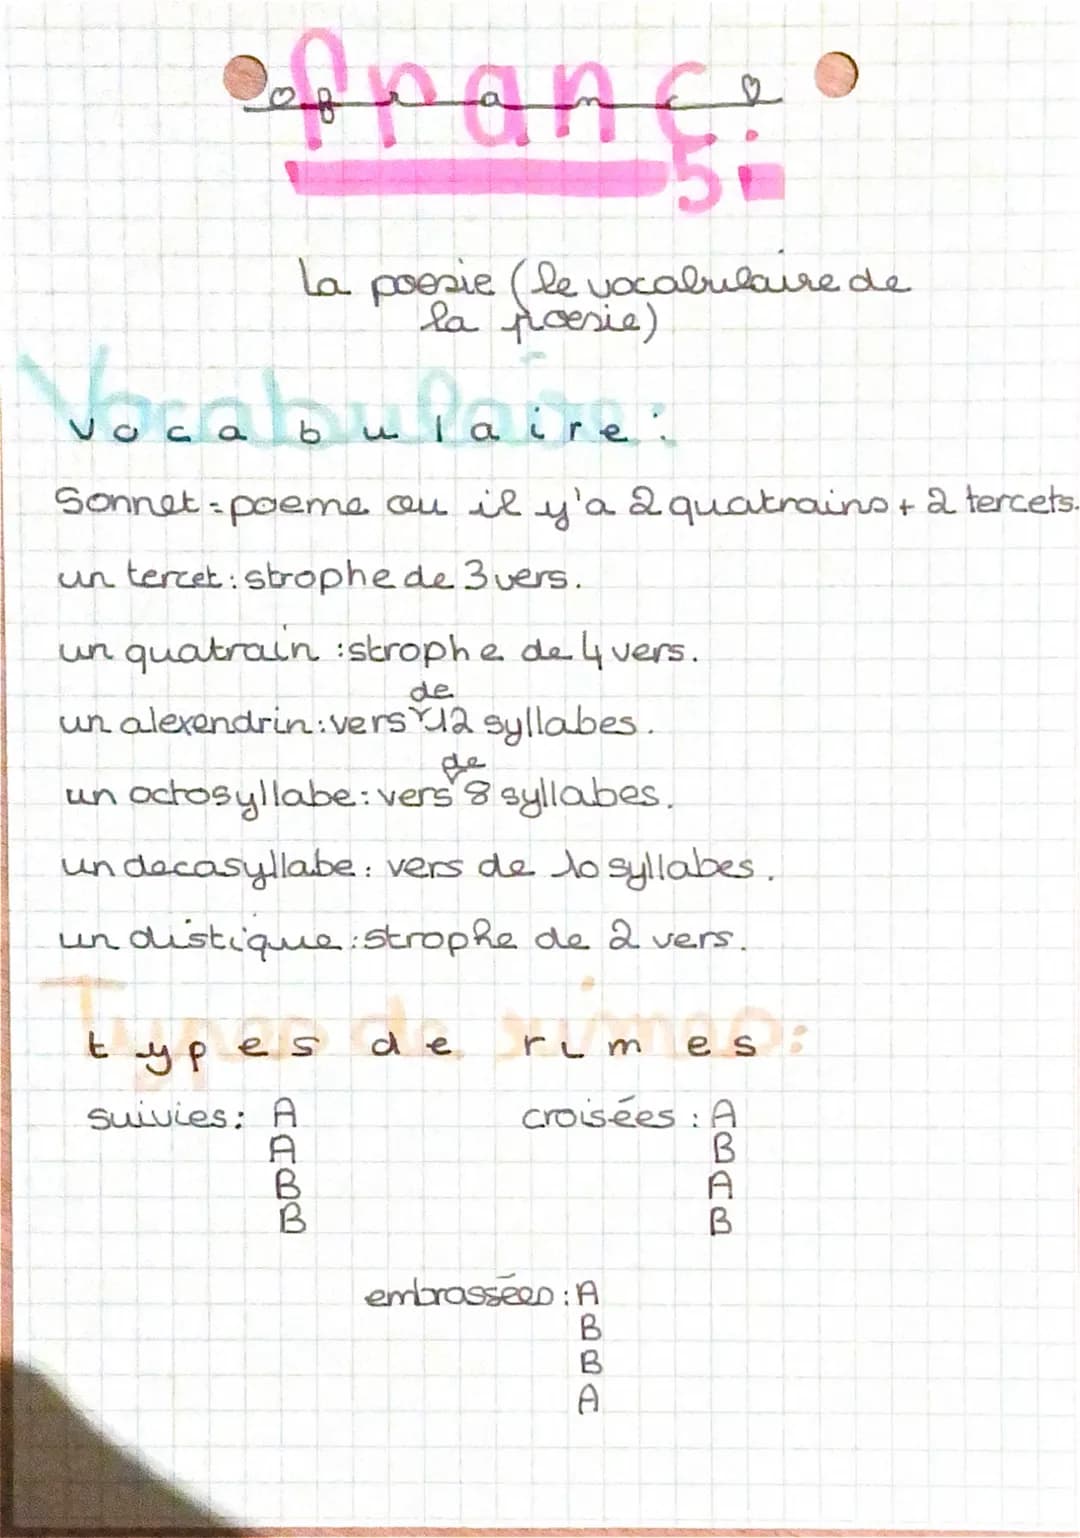 franç
La poesie (le vocabulaire de
la poesie)
Vocabulaire:
Sonnet = poeme ou il y'a 2 quatrains + 2 tercets.
un tercet: strophe de 3 vers.
un quatrain : strophe de 4 vers.
un alexendrin: vers de 12 syllabes.
un octosyllabe: vers de 8 syllabes.
un decasyllabe: vers de 10 syllabes.
un distique: strophe de 2 vers.
types de rimes:
suivies: A
A
B
B
croisées : A
B
A
B
embrassées : A
B
B
A